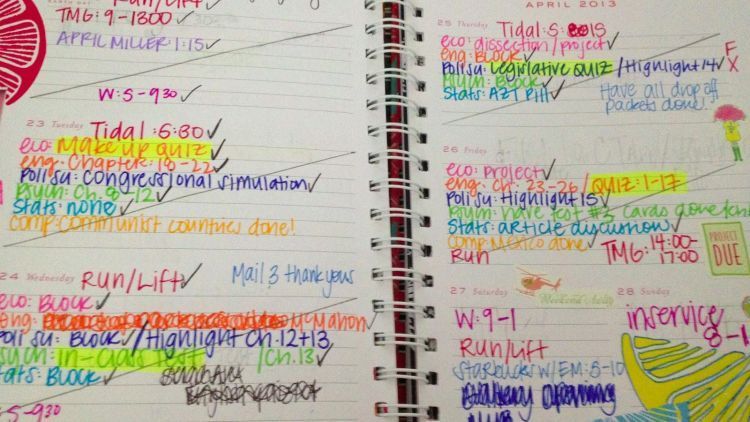 Run/Lift
TMG: 9-1300
APRIL MILLER: 1:15
W: 5-930
23 Tuesday
Tidal: 6:30
eco: Make up quiz
eng: Chapter: 18-22
Poli su: congressional simulation
Psych: Ch. 8-12
Stats: none
comp: communist countries done!
24 Wednesday
Run/Lift
Mail 3 thank yous
eco: BLOCK
eng: McMahon
Poli su: BLOCK / Highlight Ch. 12+13
Psych: in-class test / Ch. 13
Stats: BLOCK
5-930
APRIL 2013
25 Thursday
Tidal: 5: 15
eco: dissection/project
eng: BLOCK
Poli su: Legislative QUIZ / Highlight 14
F
X
Psych: BLOCK
Stats: AZT Pill
Have all drop off
packets done!
26 Friday
eco: project
eng: Ch. 23-26 / QUIZ: 1-17
Poli su: Highlight 15
Psych: have test #3 cards done
Stats: article discussion
comp: Mexico done
Run
TMG: 14:00-
17:00
PROJECT
DUE
27 Saturday
W: 9-1
Run/Lift
Starbucks W/EM: 8-10
28 Sunday
inservice
8-1